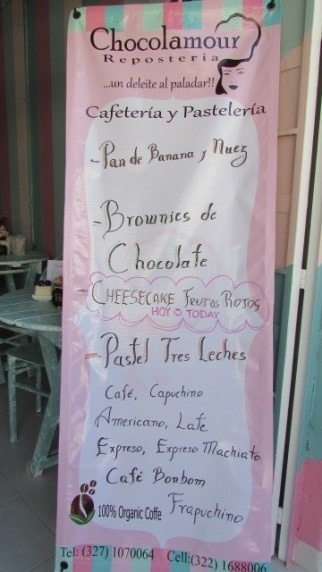 Chocolamour
Reposteria
...un deleite al paladar!!
Cafetería y Pastelería
-Pan de Banana y Nuez
-Brownies de
Chocolate
-CHEESECAKE FRUTOS ROJOS
HOY TODAY
-Pastel Tres Leches
Café, Capuchino
Americano, Late
Expreso, Expreso Machiato
Café Bonbom
100% Organic Coffe Frapuchino
Tel: (327) 1070064 Cell:(322) 1688006